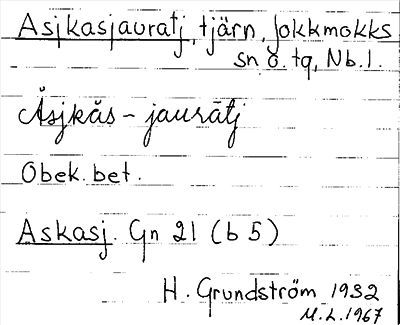 Asjkasjauratj, tjärn, Jokkmokks
sn o. tg, Nb. l.
Ȧsjkås - jaurātj
Obek. bet.
Askasj. Gn 21 (b 5)
H. Grundström 1932
M.L. 1967